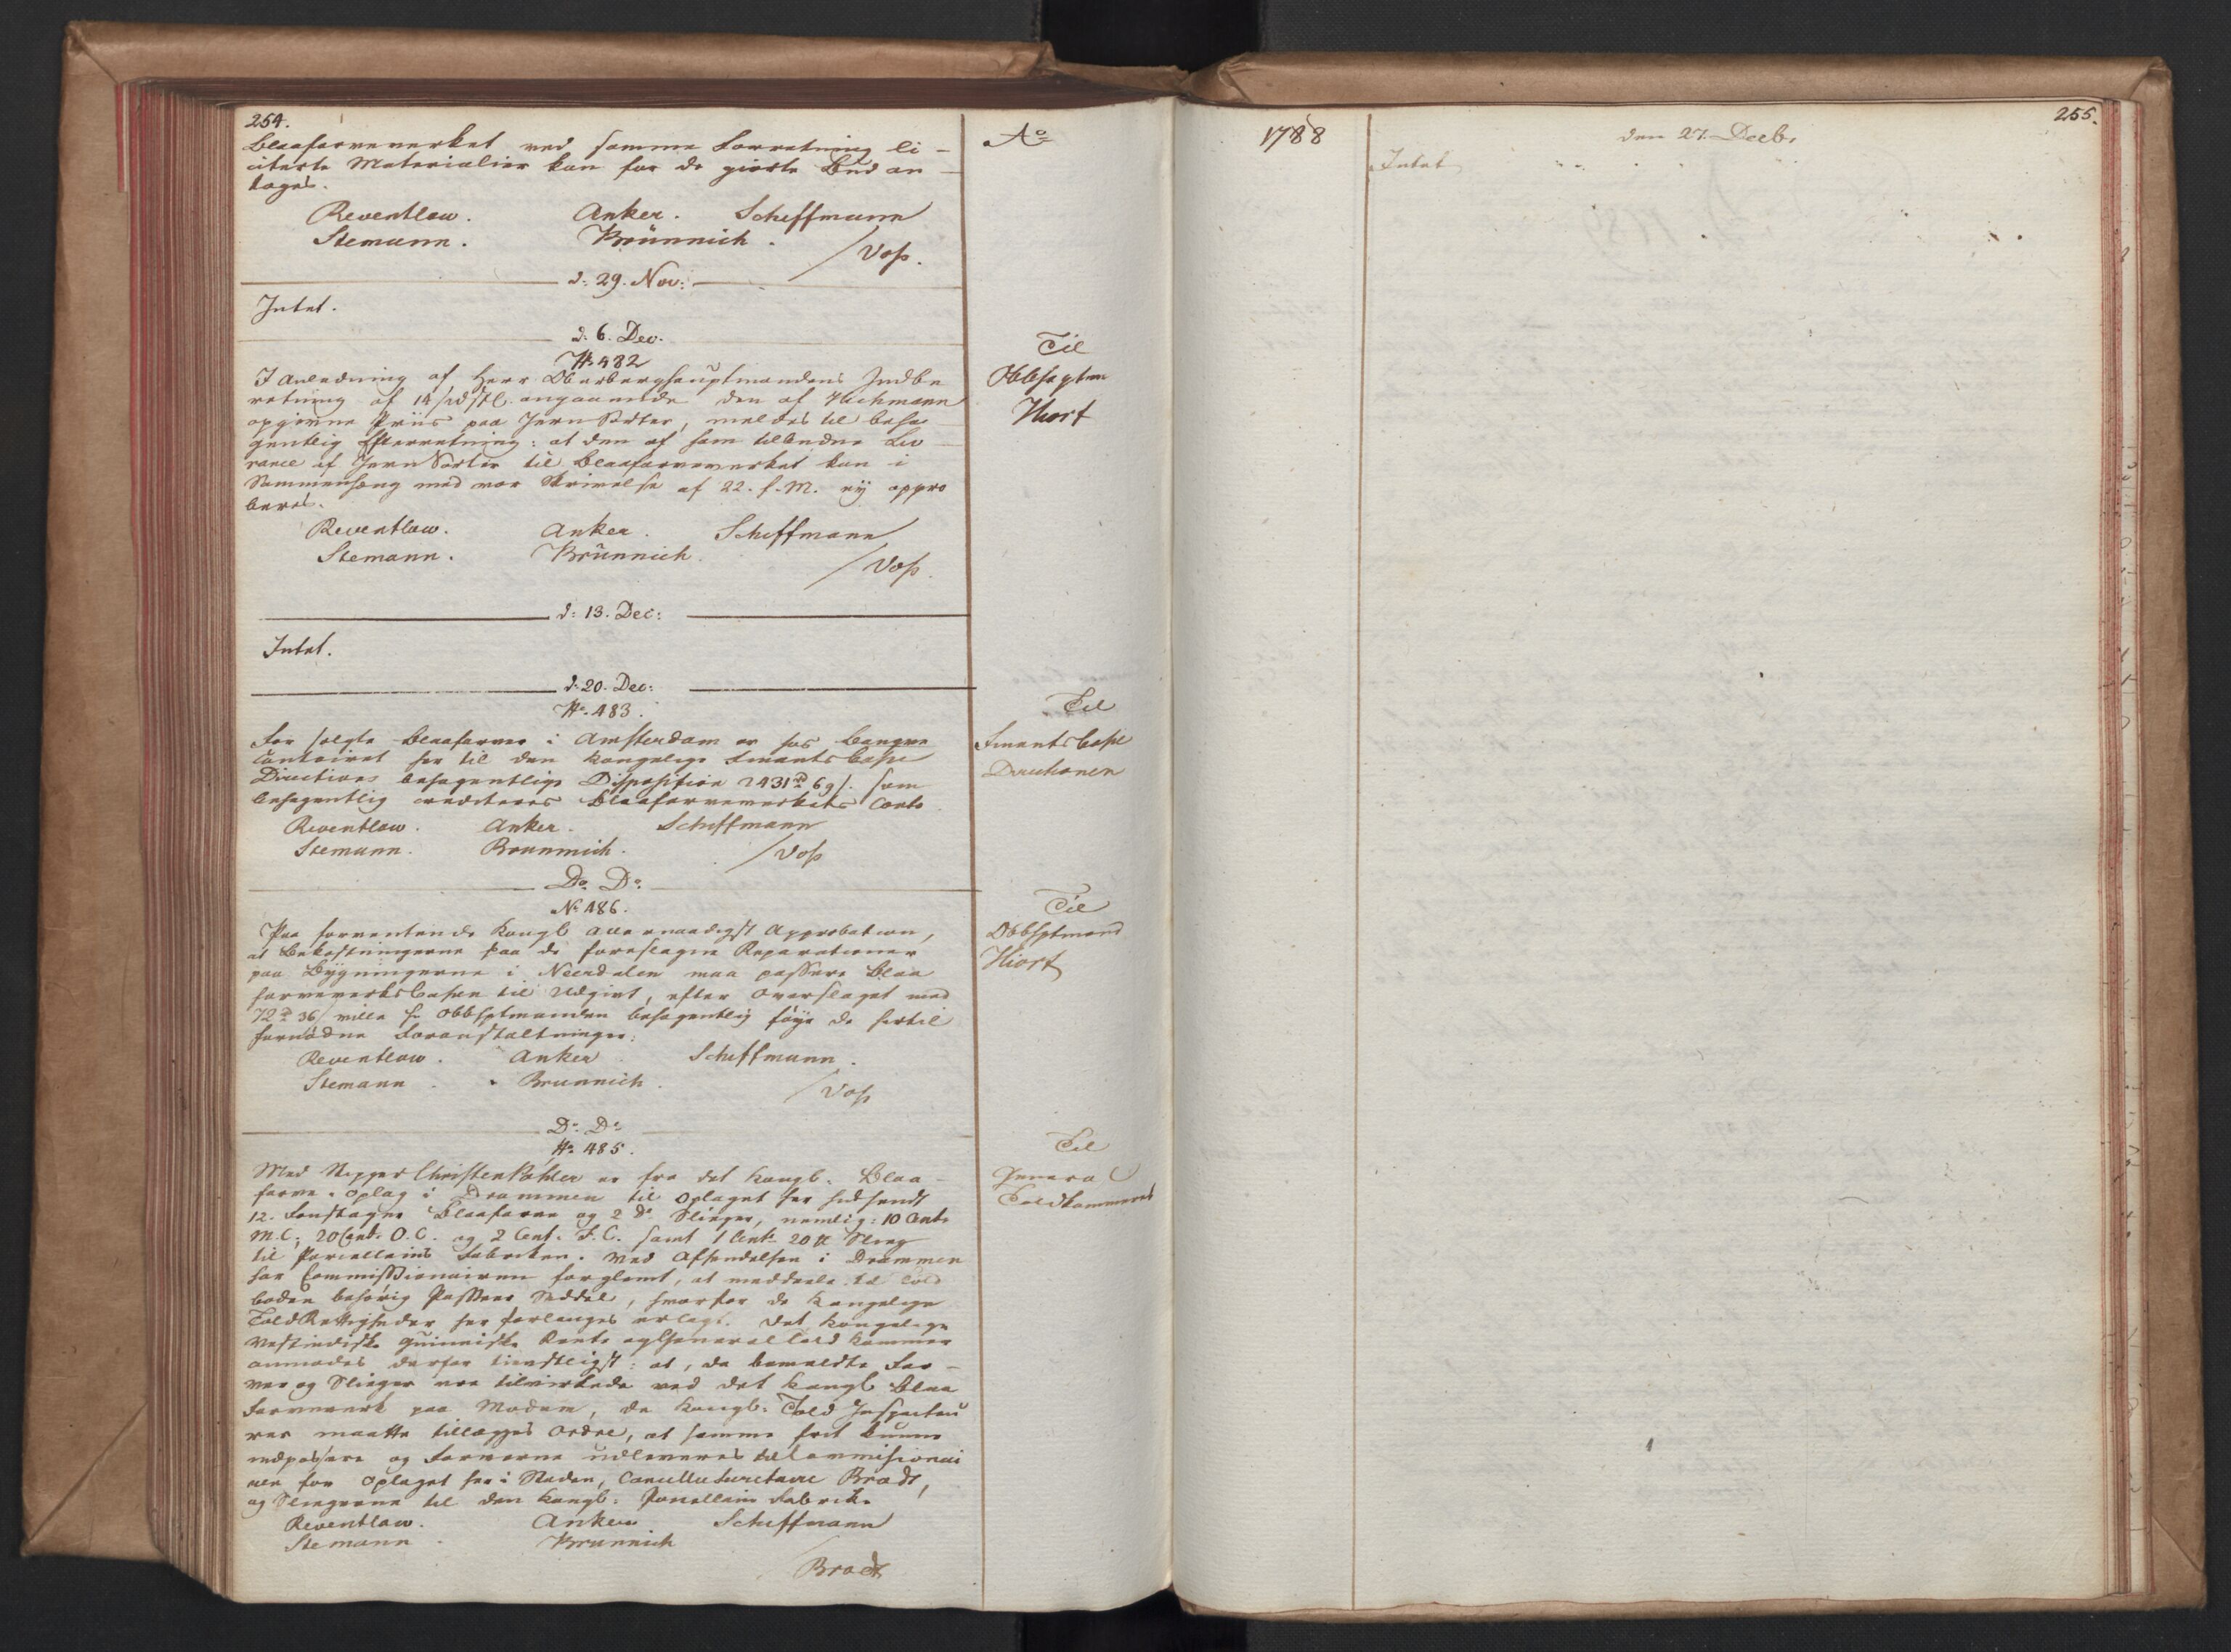 254.
Blaafarveverket ved samme Forretning li-
citerte Materialier kan for de giorte Bud an-
tages.
Reventlow. Anker. Schiffmann
Stemann. Brünnich.
/Voß.
d: 29. Nov:
Intet.
d. 6. Dec.
No 482
I Anledning af Herr Oberberghauptmandens Indbe
retning af angaaende den af Wichmann
opgivne Priis paa Jern Sorter, meldes til beha
gentlig Efterretning: at den af ham tilbudne Le
rance af Jern Sorter til Blaafarveverket kan i
Sammenhæng med vor Skrivelse af 22. f. M. ej appro
beres.
Reventlow. Anker. Schiffmann
Stemann. Brünnich.
/Voß.
d: 13. Dec:
Intet.
d. 20. Dec:
No. 483.
For solgte Blaafarver i Amsterdam er hos Banqve
Contoiret her til den Kongelige Finants Casse
Directions behagentlige Disposition 2431 rd 69 s. som
behagentlig crediteres Blaafarveverkets Conto
Reventlow. Anker. Schiffmann
Stemann. Brunnich.
/Voß
Do Do.
No 486.
Paa forventende Kongl allernaadigst Approbation,
at Bekostningerne paa de foreslagne Reparationer
paa Bygningerne i maa passere Blaa
farveverks Cassen til Udgivt, efter Overslaget med
72 rd 36 s ville Hr Obbhptmanden behagentlig føye de hertil
fornødne Foranstaltninger.
Reventlow. Anker. Schiffmann.
Stemann. Brunnich.
/Voß
Do. Do
No 485.
Med Skipper Christen er fra det Kongl. Blaa-
farve-Oplag i Drammen til Oplaget her hidsendt
12. Fustager Blaafarve og 2 do Slieger, nemlig: 10 Cent.
M.C; 20 Cent. O.C. og 2 Cent. F.C. samt 1 Cent. 20 ℔ Slieg
til Porcellains Fabriken. Ved Afsendelsen i Drammen
har Commissionairen forglemt, at meddeele til Told
boden behørig Passeer Seddel, hvorfor de Kongelige
Told Rettigheder her forlanges erlagt. Det Kongelige
Vestindiske Guineiske Rente og General Told Kammer
anmodes derfor tienstligst: at, da bemeldte Far-
ver og Slieger ere tilvirkede ved det Kongl. Blaa
Farveverk paa Modum, de Kongl. Told Inspecteu
rer maatte tillægges Ordre, at samme frit kunne
indpassere og Farverne udleveres til Commissionai
ren for Oplaget her i Staden, Cancellie Secretaire Bradt,
og Sliegerne til den Kongl. Porcellain Fabrik.
Reventlow. Anker Schiffmann
Stemann. Brunnich
/Bradt
Ao
Til
Obbhptm
Hiort
Til
Finants Casse
Directionen
Til
Obbhptmand
Hiort
Til
General
Toldkammeret
1788
255.
den 27. Decbr.
Intet